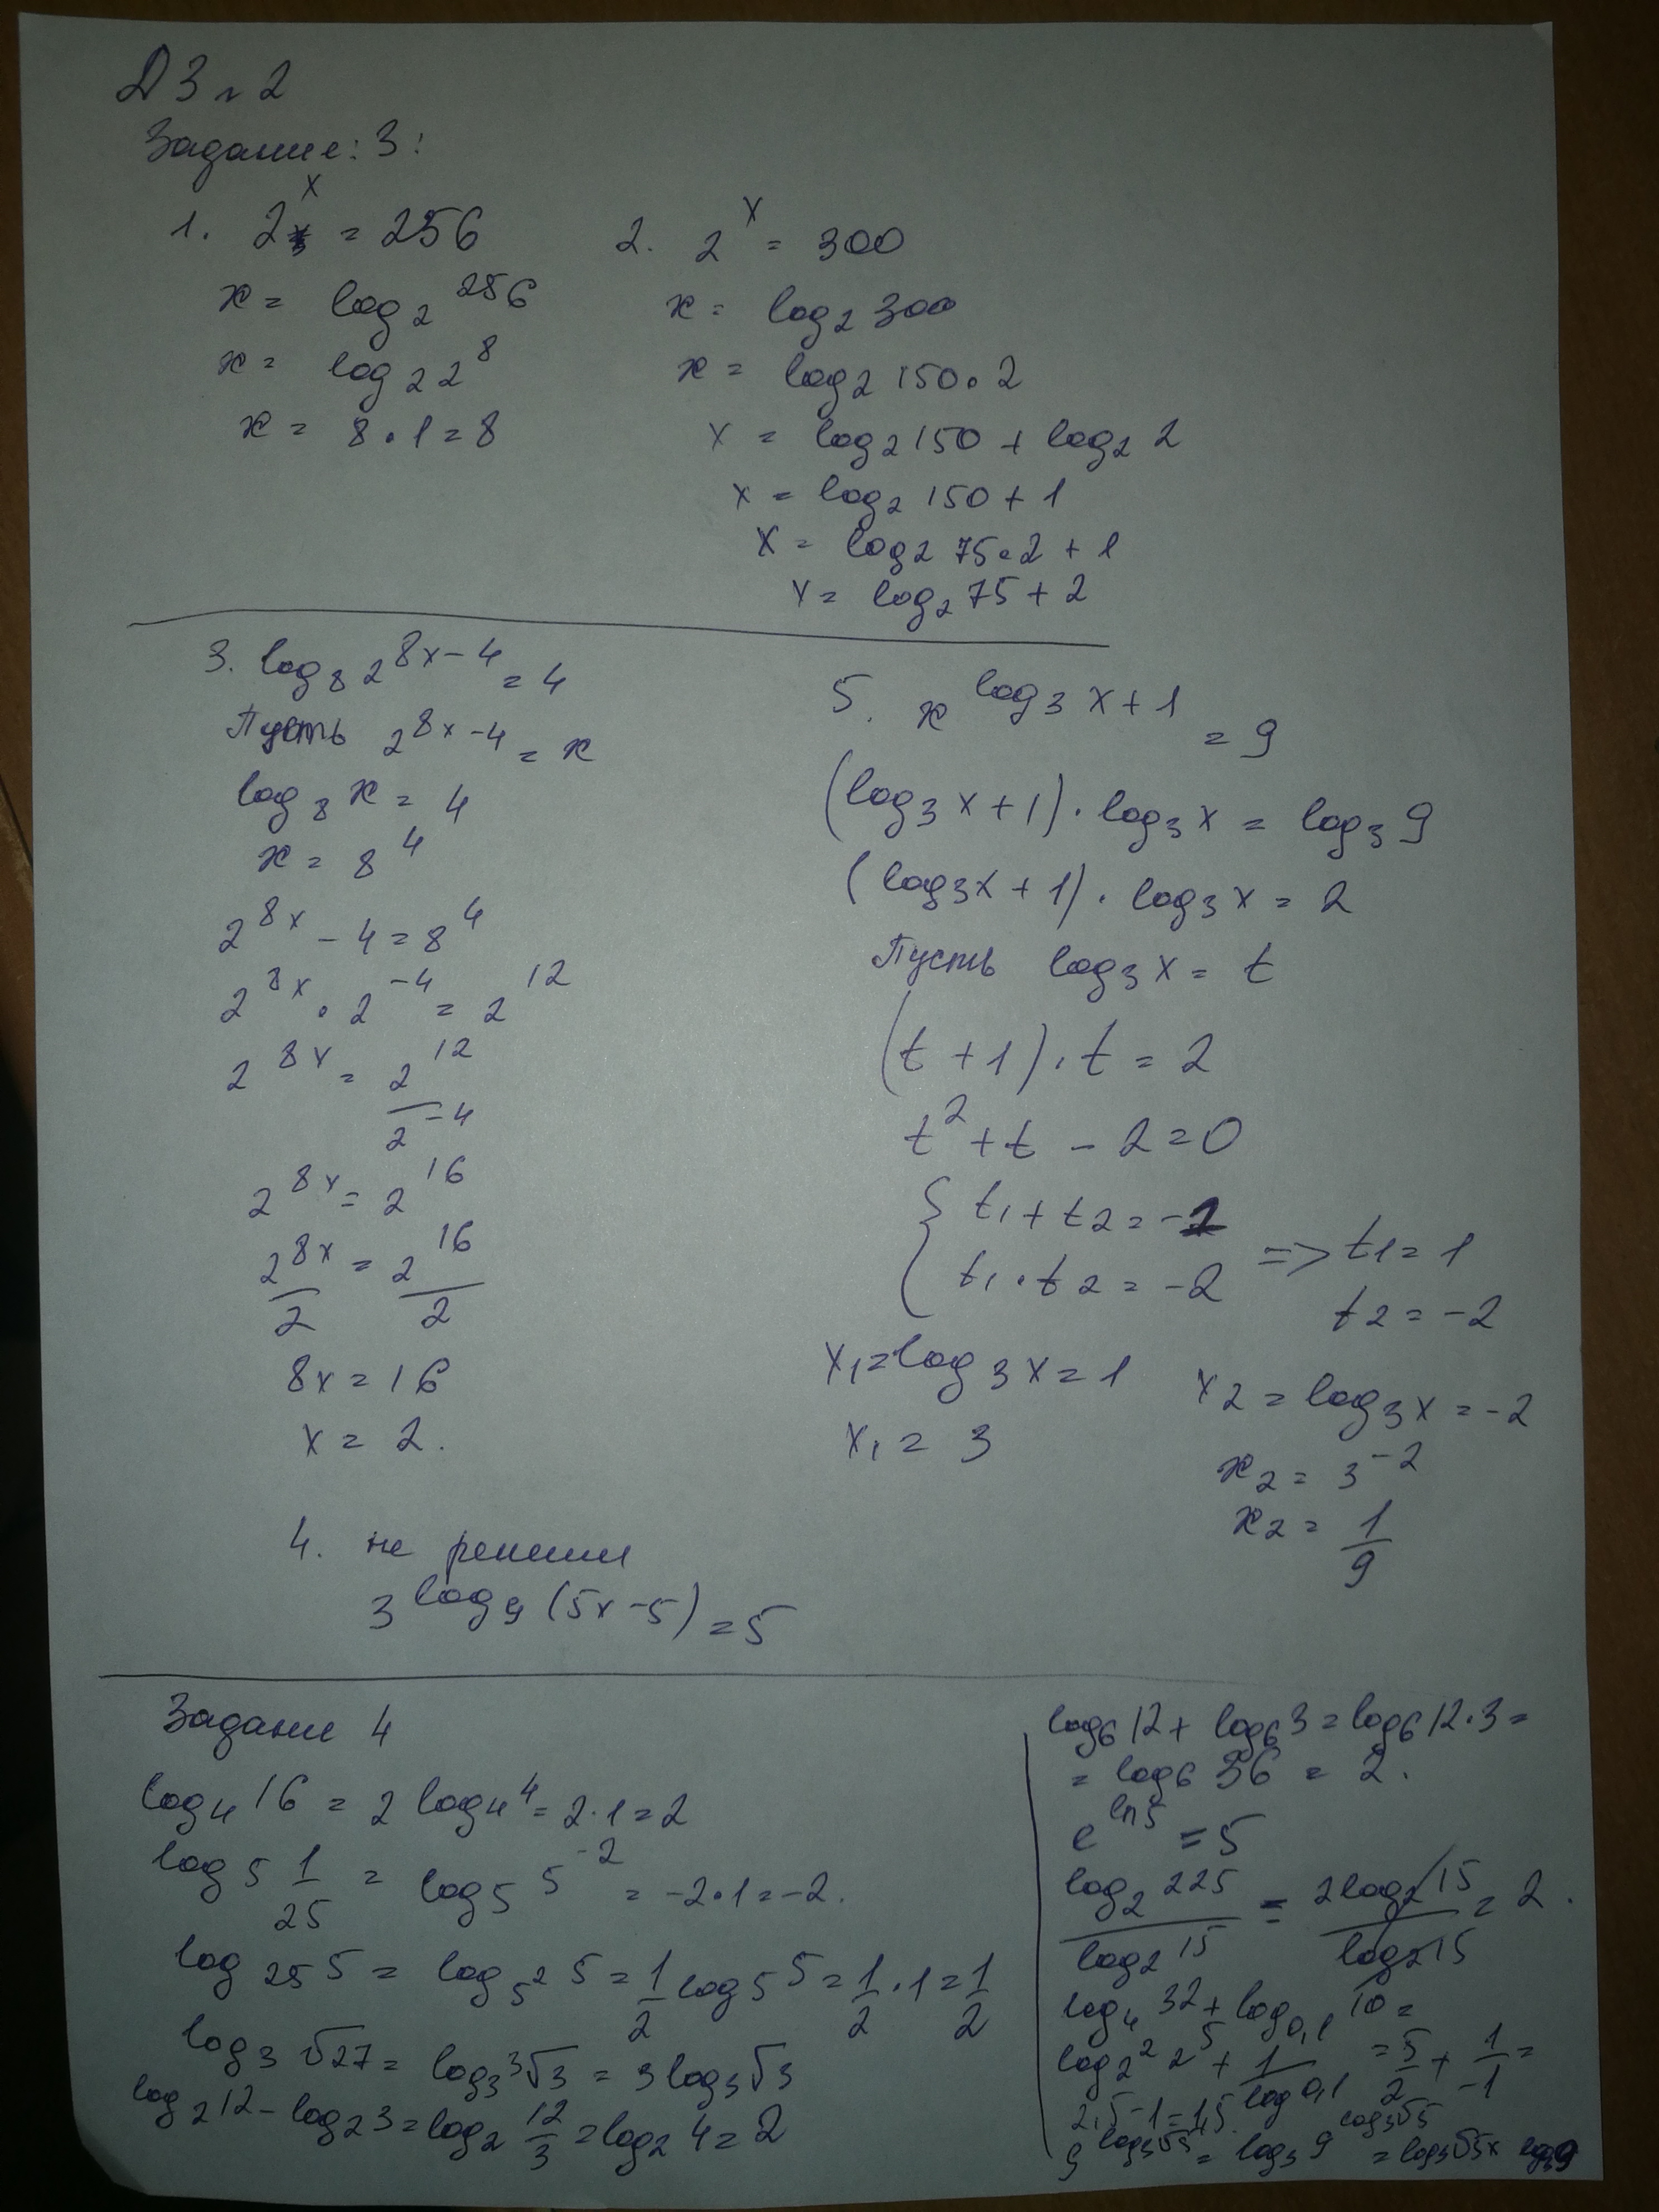 ДЗ л 2
Задание: 3:
1. 2^x = 256
x = log₂ 256
x = log₂ 2⁸
x = 8 · 1 = 8
2. 2^x = 300
x = log₂ 300
x = log₂ 150 · 2
x = log₂ 150 + log₂ 2
x = log₂ 150 + 1
x = log₂ 75 · 2 + 1
x = log₂ 75 + 2
3. log₈ 2^(8x-4) = 4
Пусть 2^(8x-4) = x
log₈ x = 4
x = 8⁴
2^(8x) - 4 = 8⁴
2^(8x) · 2^(-4) = 2^12
2^(8x) = 2^12 / 2^(-4)
2^(8x) = 2^16
2^(8x) / 2 = 2^16 / 2
8x = 16
x = 2.
4. не решили
3^(log₉ (5x-5)) = 5
5. x^(log₃ x + 1) = 9
(log₃ x + 1) · log₃ x = log₃ 9
(log₃ x + 1) · log₃ x = 2
Пусть log₃ x = t
(t + 1) · t = 2
t² + t - 2 = 0
{ t₁ + t₂ = -1
{ t₁ · t₂ = -2 => t₁ = 1
t₂ = -2
x₁ = log₃ x = 1
x₁ = 3
x₂ = log₃ x = -2
x₂ = 3^(-2)
x₂ = 1/9
Задание 4
log₄ 16 = 2 log₄ 4 = 2 · 1 = 2
log₅ 1/25 = log₅ 5^(-2) = -2 · 1 = -2.
log₂₅ 5 = log₅² 5 = 1/2 log₅ 5 = 1/2 · 1 = 1/2
log₃ √27 = log₃ ³√3 = 3 log₃ √3
log₂ 12 - log₂ 3 = log₂ 12/3 = log₂ 4 = 2
log₆ 12 + log₆ 3 = log₆ 12 · 3 =
= log₆ 36 = 2.
e^(ln 5) = 5
log₂ 225 / log₂ 15 = 2 log₂ 15 / log₂ 15 = 2.
log₄ 32 + log₀,₁ 10 =
log₂² 2⁵ + 1 / log 0,1 = 5/2 + 1/-1 =
2,5 - 1 = 1,5
9^(log₃ √5) = log₃ 9^(log₃ √5) = log₃ √5 x log₃ 9